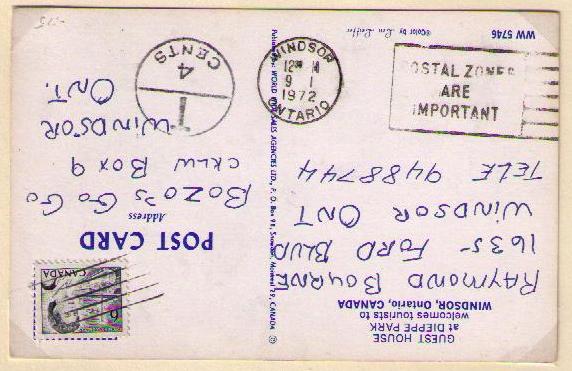 GUEST HOUSE
at DIEPPE PARK
welcomes tourists to
WINDSOR, Ontario, CANADA
RAYMOND BOURNE
1635 - FORD BLVD
WINDSOR ONT
TELE 9488744
WW 5746
©Color by
WORLD WIDE SALES AGENCIES LTD., P. O. Box 98, Montreal 29, CANADA
POST CARD
Address
BOZO'S GO GO
CKLW BOX 9
WINDSOR
ONT.
CANADA
6
T
4
CENTS
WINDSOR
9 1
1972
ONTARIO
POSTAL ZONES
ARE
IMPORTANT